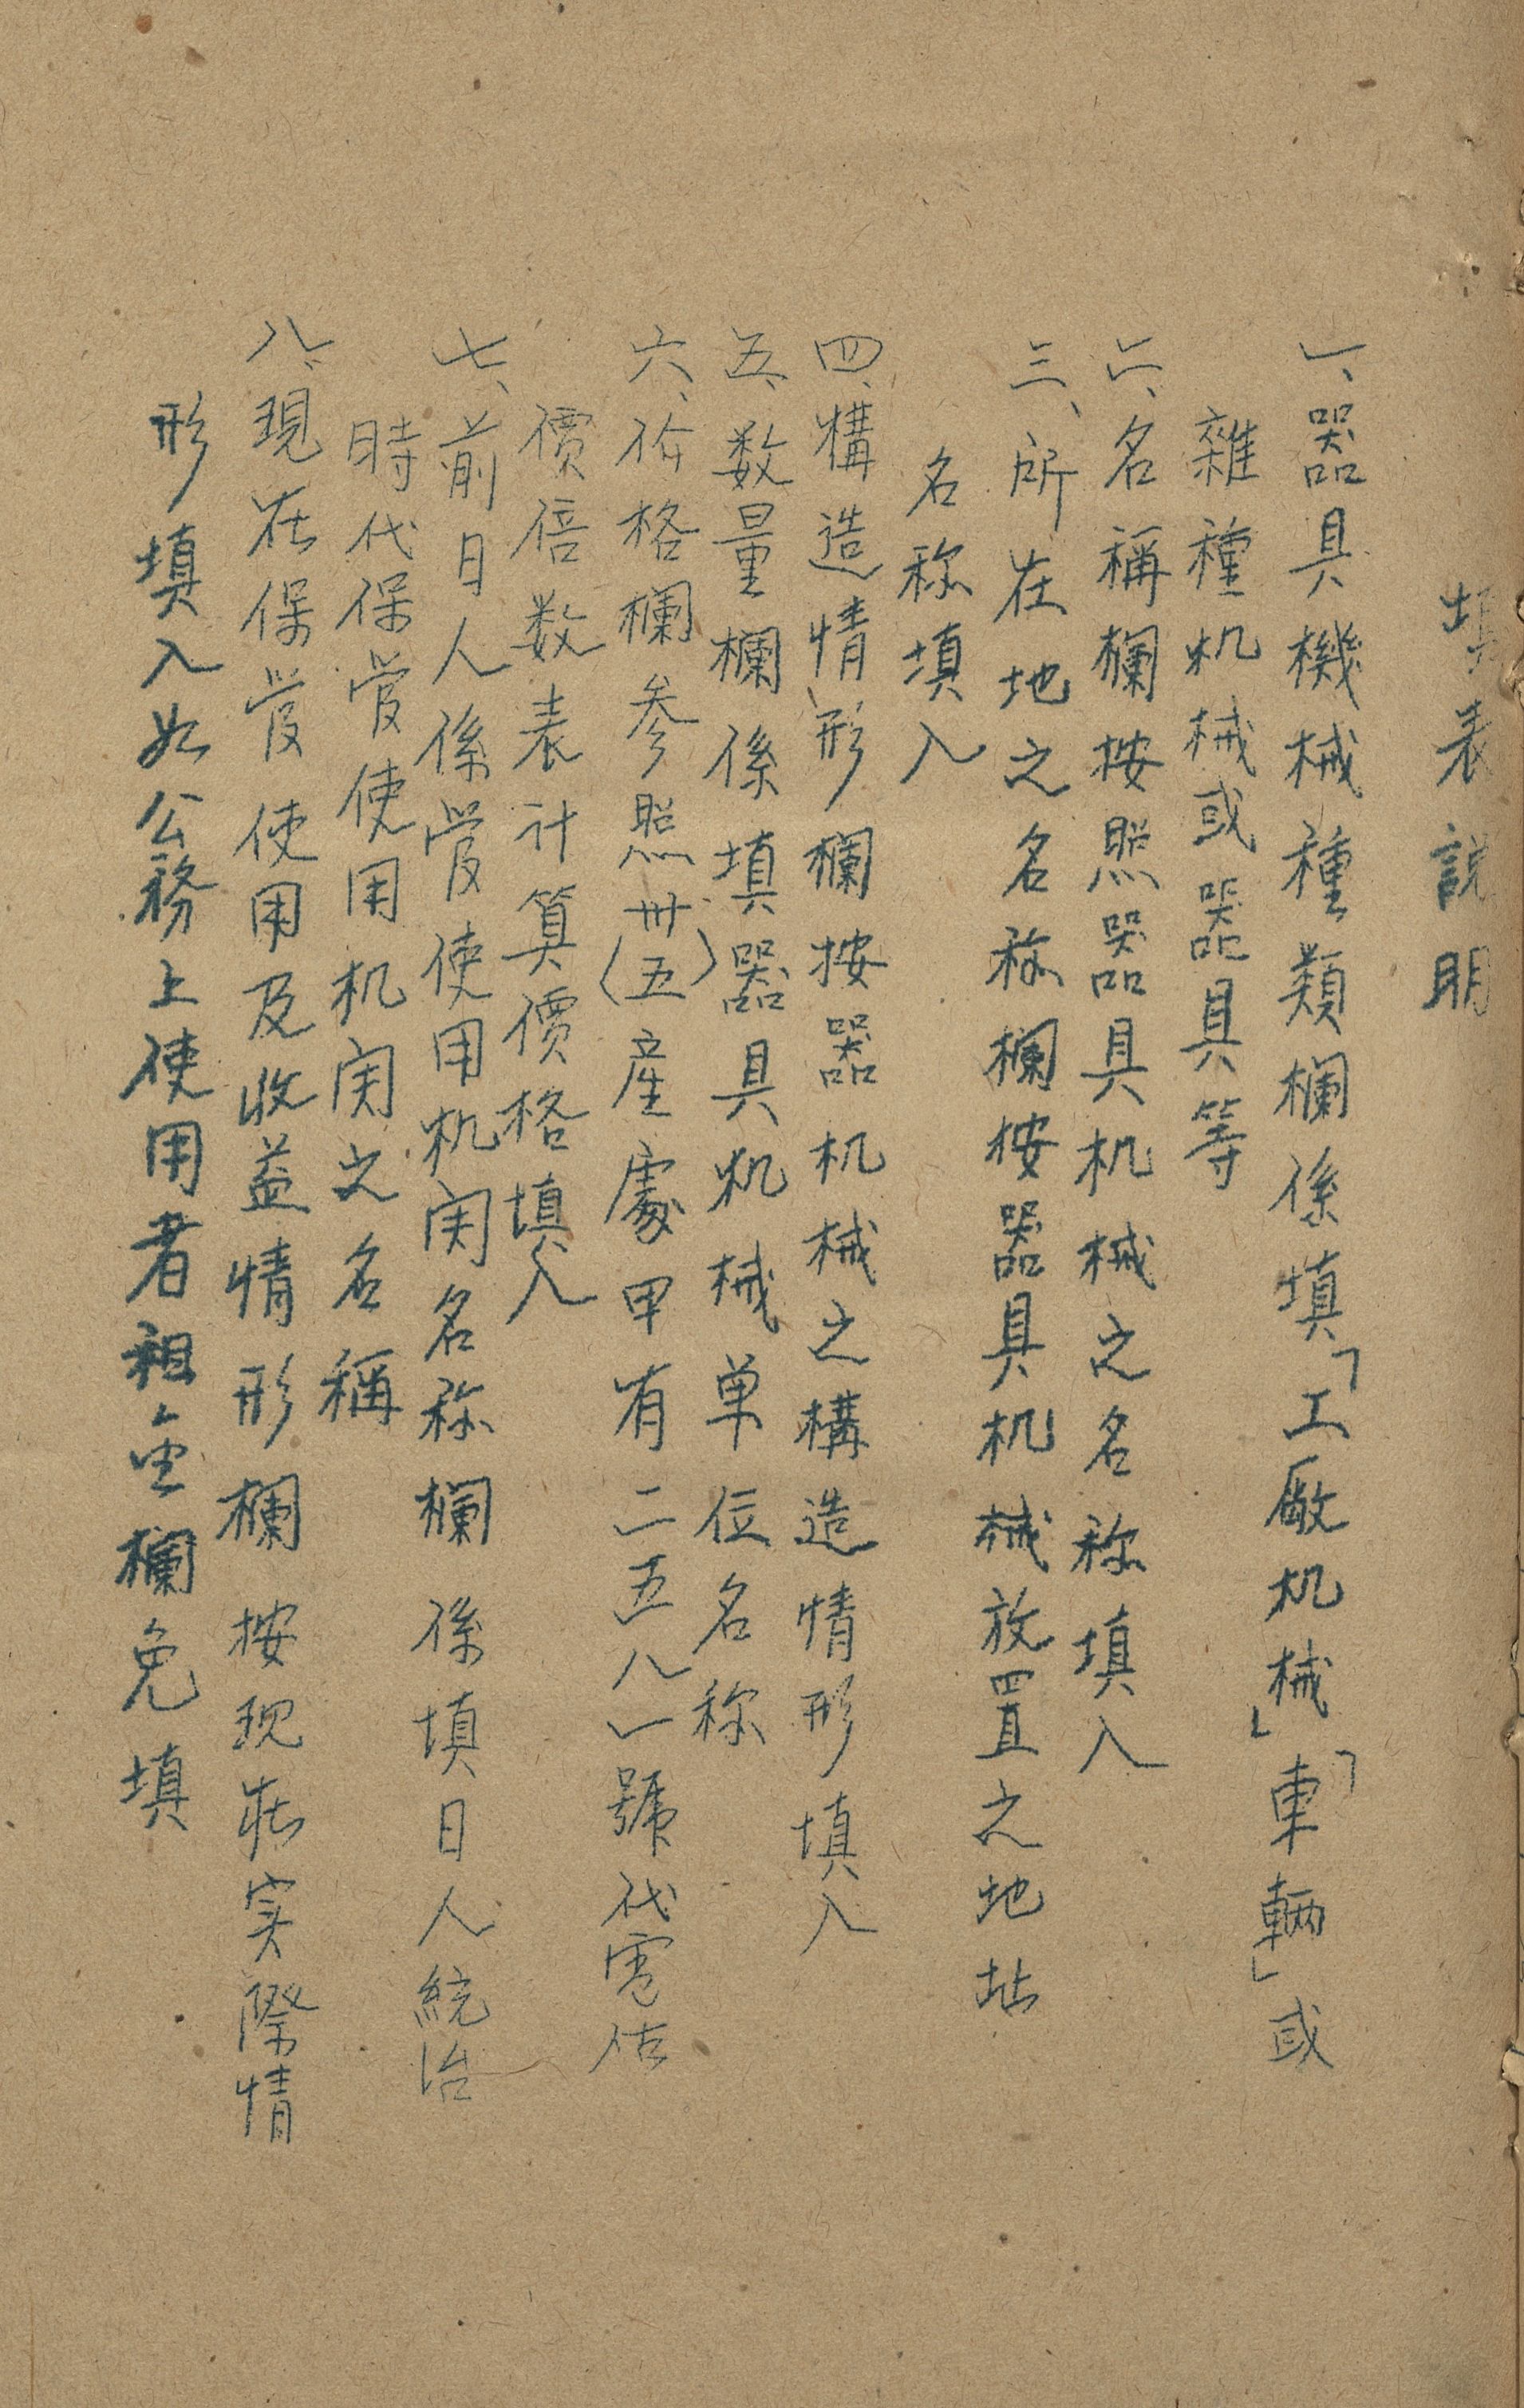 填表説明
一、器具機械種類欄係填「工廠机械」「車輛」或
雜種机械或器具等
二、名稱欄按照器具机械之名称填入
三、所在地之名称欄按器具机械放置之地址
名称填入
四、構造情形欄按器机械之構造情形填入
五、数量欄係填器具机械单位名称
六、价格欄参照卅(五)産處甲有二五八一號代電估
價倍数表計算價格填入
七、前日人係管使用机関名称欄係填日人統治
時代保管使用机関之名稱
八、現在保管使用及收益情形欄按现在实際情
形填入如公務上使用者租金欄免填